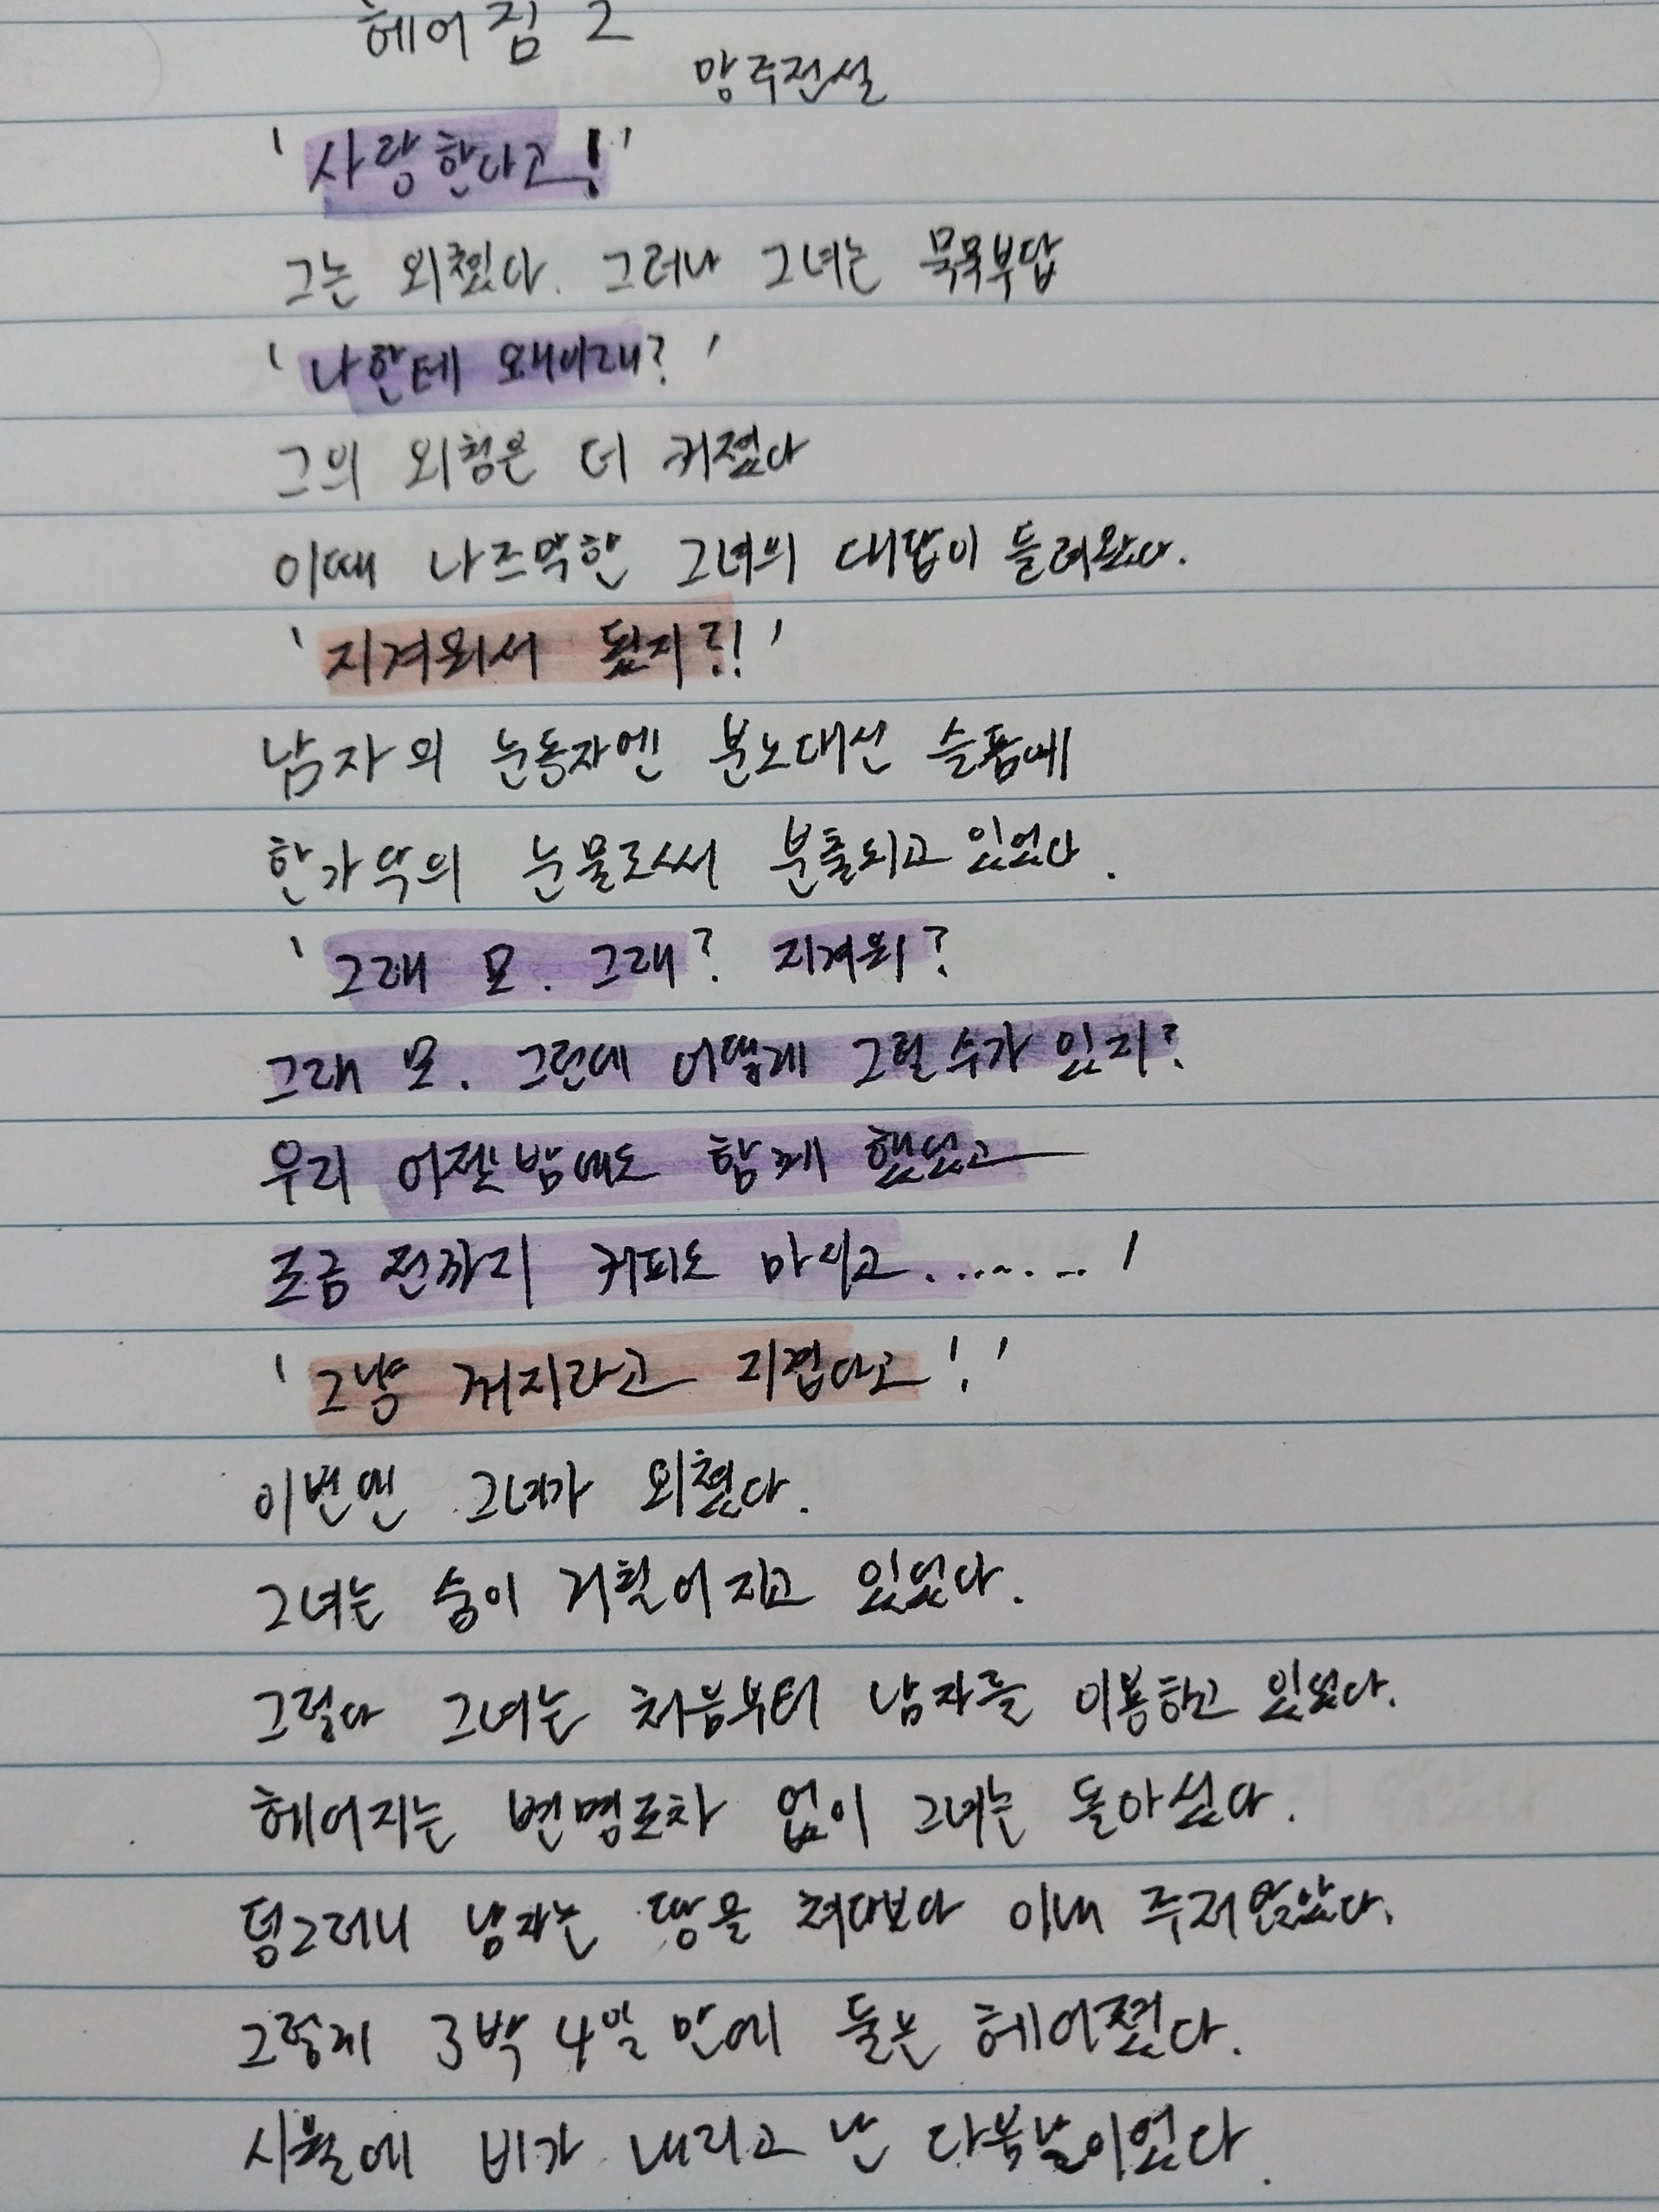 헤어짐 2
망주전설
'사랑한다고!'
그는 외쳤다. 그러나 그녀는 묵묵부답
'나한테 왜이래?'
그의 외침은 더 커졌다
이때 나즈막한 그녀의 대답이 들려왔다.
'지겨워서 됐지?!'
남자의 눈동자엔 분노대신 슬픔에
한가닥의 눈물로써 분출되고 있었다.
'그래 모. 그래? 지겨워?
그래 모. 그런데 어떻게 그럴수가 있지?
우리 어젯밤에도 함께 했었고
조금 전까지 커피도 마시고........'
'그냥 꺼지라고 지겹다고!'
이번엔 그녀가 외쳤다.
그녀는 숨이 거칠어지고 있었다.
그렇다 그녀는 처음부터 남자를 이용하고 있었다.
헤어지는 변명조차 없이 그녀는 돌아섰다.
덩그러니 남자는 땅을 쳐다보다 이내 주저앉았다.
그렇게 3박4일만에 둘은 헤어졌다.
시월에 비가 내리고 난 다음날이었다.